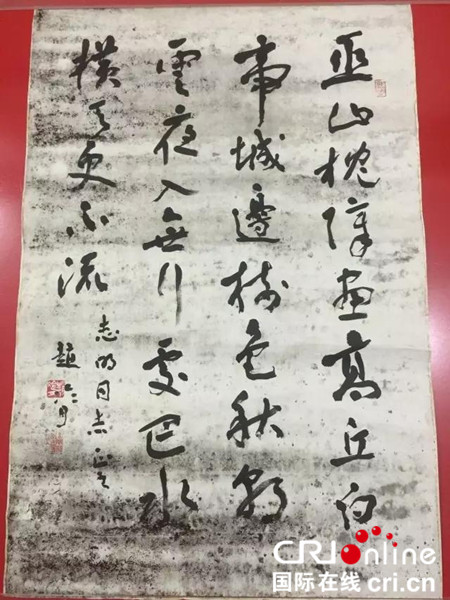 巫山枕障畫高丘白
帝城邊樹色秋朝
雲夜入無行處巴水
横天更不流
志明同志正之
趙冷月
CRIonline
国际在线 cri.cn